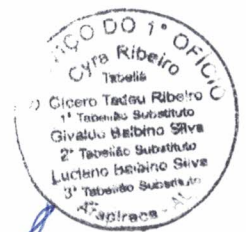 IÇO DO 1º OFÍCIO
Cyra Ribeiro
Tabeliã
Cícero Tadeu Ribeiro
1º Tabelião Substituto
Givaldo Balbino Silva
2º Tabelião Substituto
Luciano Balbino Silva
3º Tabelião Substituto
Arapiraca - AL